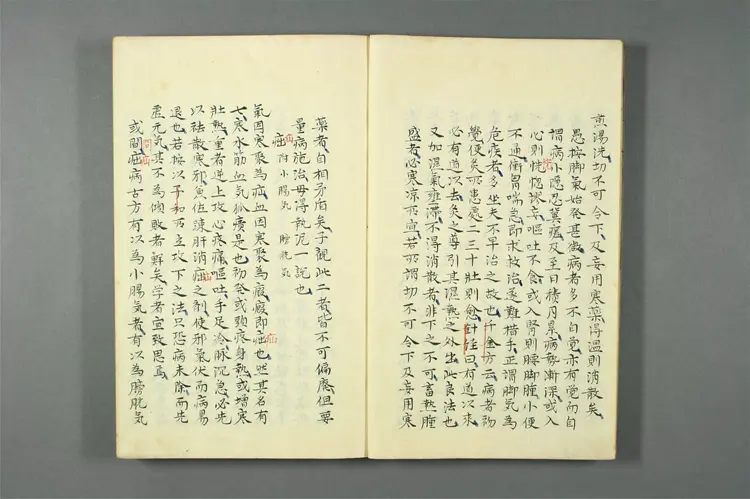 煎湯洗切不可令下及妄用寒藥得温則消散矣
愚按脚氣始発甚微病者多不自覚亦有覚而自
謂病小隱忍冀瘟及至日積月累病勢漸深或入
心則恍惚謬妄嘔吐不食或入腎則腰脚腫小便
不通衝胃喘急即求救治遂難措手正謂脚気為
危疾者多坐夫不早治之故也千金方云病者初
覺便灸所患處二三十壮則愈針経曰有道以来
必有道以去灸之導引其濕熱之外出此良法也
又加濕氣壅滞不得消散者非下之不可畜熱
盛者必寒凉所宣若所謂切不可令下及妄用寒
藥者自相矛盾矣予観此二者皆不可偏廢但要
量病施治毋得執泥一說也
疝 附小腸気 膀胱気
氣因寒聚為疝血因寒聚為瘕瘕即疝也然其名有
七寒水筋血気狐㿗是也初発或頸疼身熱或增寒
壮熱重者逆上攻心疼痛嘔吐手足冷脉沉急必先
以祛散寒邪佐疎肝消疝之剤使邪氣伏而病易
退也若按以子和所立攻下之法只恐病未除而先
虚元気其不為傾敗者鮮矣学者宣致思焉
或問疝病古方有以為小腸気者有以為膀胱気